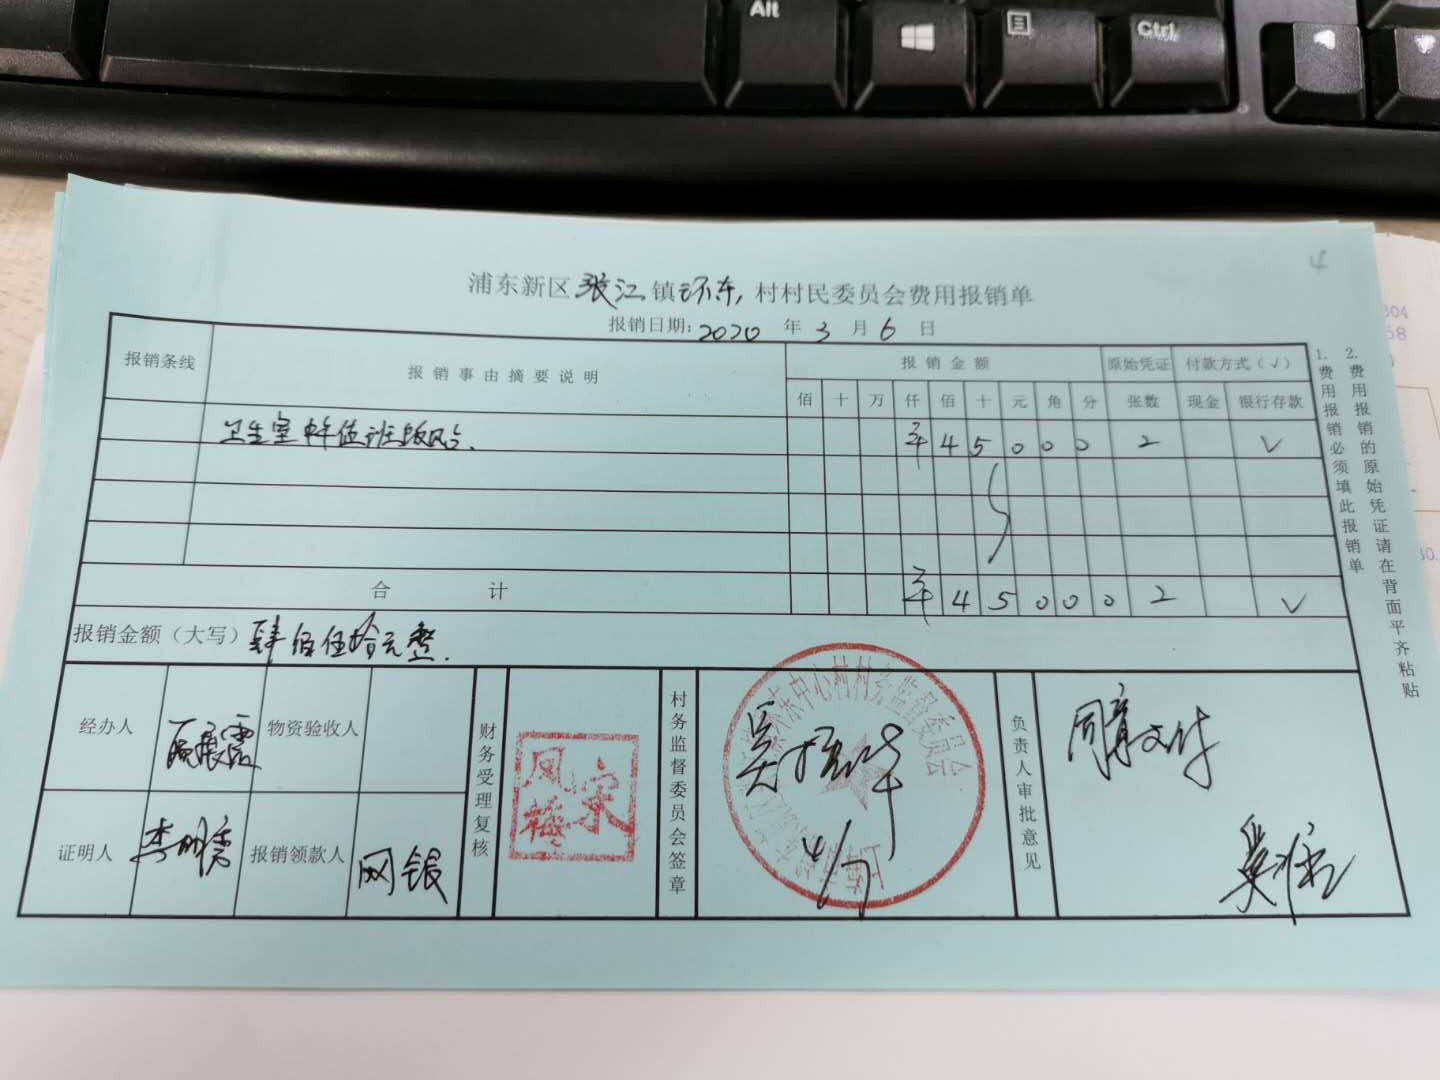 Alt
Ctrl
4
浦东新区张江镇环东村村民委员会费用报销单
报销日期:2020年3月6日
报销条线 报销事由摘要说明 报销金额 原始凭证 付款方式(√)
佰 十 万 仟 佰 十 元 角 分 张数 现金 银行存款
卫生室 值班 ¥ 4 5 0 0 0 2 √
合计 ¥ 4 5 0 0 0 2 √
报销金额(大写)肆佰伍拾元整.
经办人 物资验收人
证明人 报销领款人 网银
财务受理复核
宋凤梅
村务监督委员会签章
环东中心村村务监督委员会
4/7
负责人审批意见
同意支付
1. 费用报销必须填此报销单
2. 费用报销的原始凭证请在背面平齐粘贴